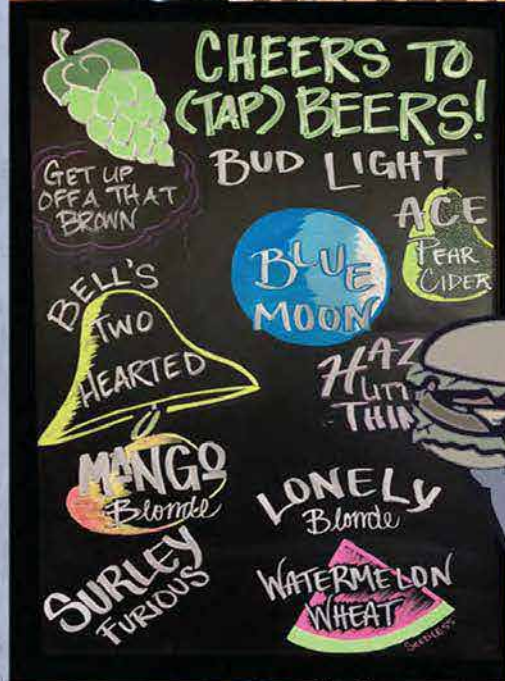 CHEERS TO
(TAP) BEERS!
BUD LIGHT
GET UP
OFFA THAT
BROWN
ACE
PEAR
CIDER
BLUE
MOON
BELL'S
TWO
HEARTED
HAZ
LITT
THIN
MANGO
Blonde
LONELY
Blonde
SURLEY
FURIOUS
WATERMELON
WHEAT
SEEDLESS